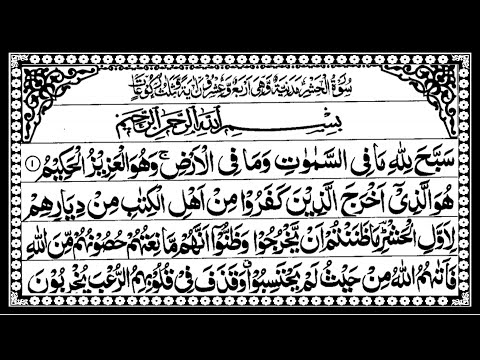 سُوْرَةُ الْحَشْرِ مَدَنِيَّةٌ وَّهِيَ اَرْبَعٌ وَّعِشْرُوْنَ اٰيَةً وَّثَلٰثُ رُكُوْعَاتٍ
بِسْمِ اللّٰهِ الرَّحْمٰنِ الرَّحِيْمِ
سَبَّحَ لِلّٰهِ مَا فِى السَّمٰوٰتِ وَمَا فِى الْاَرْضِ ۚ وَهُوَ الْعَزِيْزُ الْحَكِيْمُ ۝۱
هُوَ الَّذِيْٓ اَخْرَجَ الَّذِيْنَ كَفَرُوْا مِنْ اَهْلِ الْكِتٰبِ مِنْ دِيَارِهِمْ
لِاَوَّلِ الْحَشْرِؕ مَا ظَنَنْتُمْ اَنْ يَّخْرُجُوْا وَظَنُّوْٓا اَنَّهُمْ مَّانِعَتُهُمْ حُصُوْنُهُمْ مِّنَ اللّٰهِ
فَاَتٰىهُمُ اللّٰهُ مِنْ حَيْثُ لَمْ يَحْتَسِبُوْا ۗ وَقَذَفَ فِيْ قُلُوْبِهِمُ الرُّعْبَ يُخْرِبُوْنَ